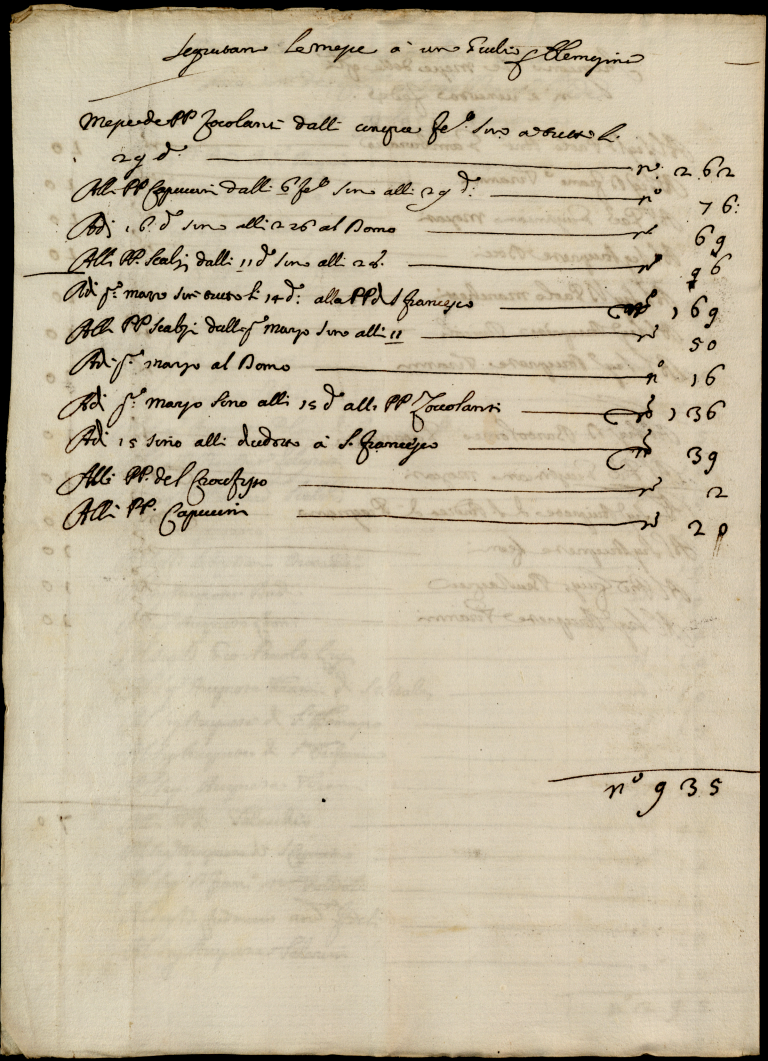 Seguitano le messe à un Giulio l'elemosina
Messe de PP Zocolanti dalli cinque fe.º sino a tutto li
29 d.º nº 262
Alli PP Capuccini dalli 6 feº sino alli 29 d.º nº 76
Adi 16 dº sino alli 226 al Domo nº 69
Alli PP. Scalzi dalli 11 dº sino alli 28. nº 96
Adi pº marzo sin tutto li 14 dº: alla PP di S francesco nº 169
Alli PP Scalzi dalli pº marzo sino alli 11 nº 50
Adi pº marzo al Domo nº 16
Adi pº marzo sino alli 15 dº alli PP Zoccolanti nº 136
Adi 15 sino alli diedotto à S. francesco nº 39
Alli PP. del Crocefisso nº 2
Alli PP. Capuccini nº 20
nº 935